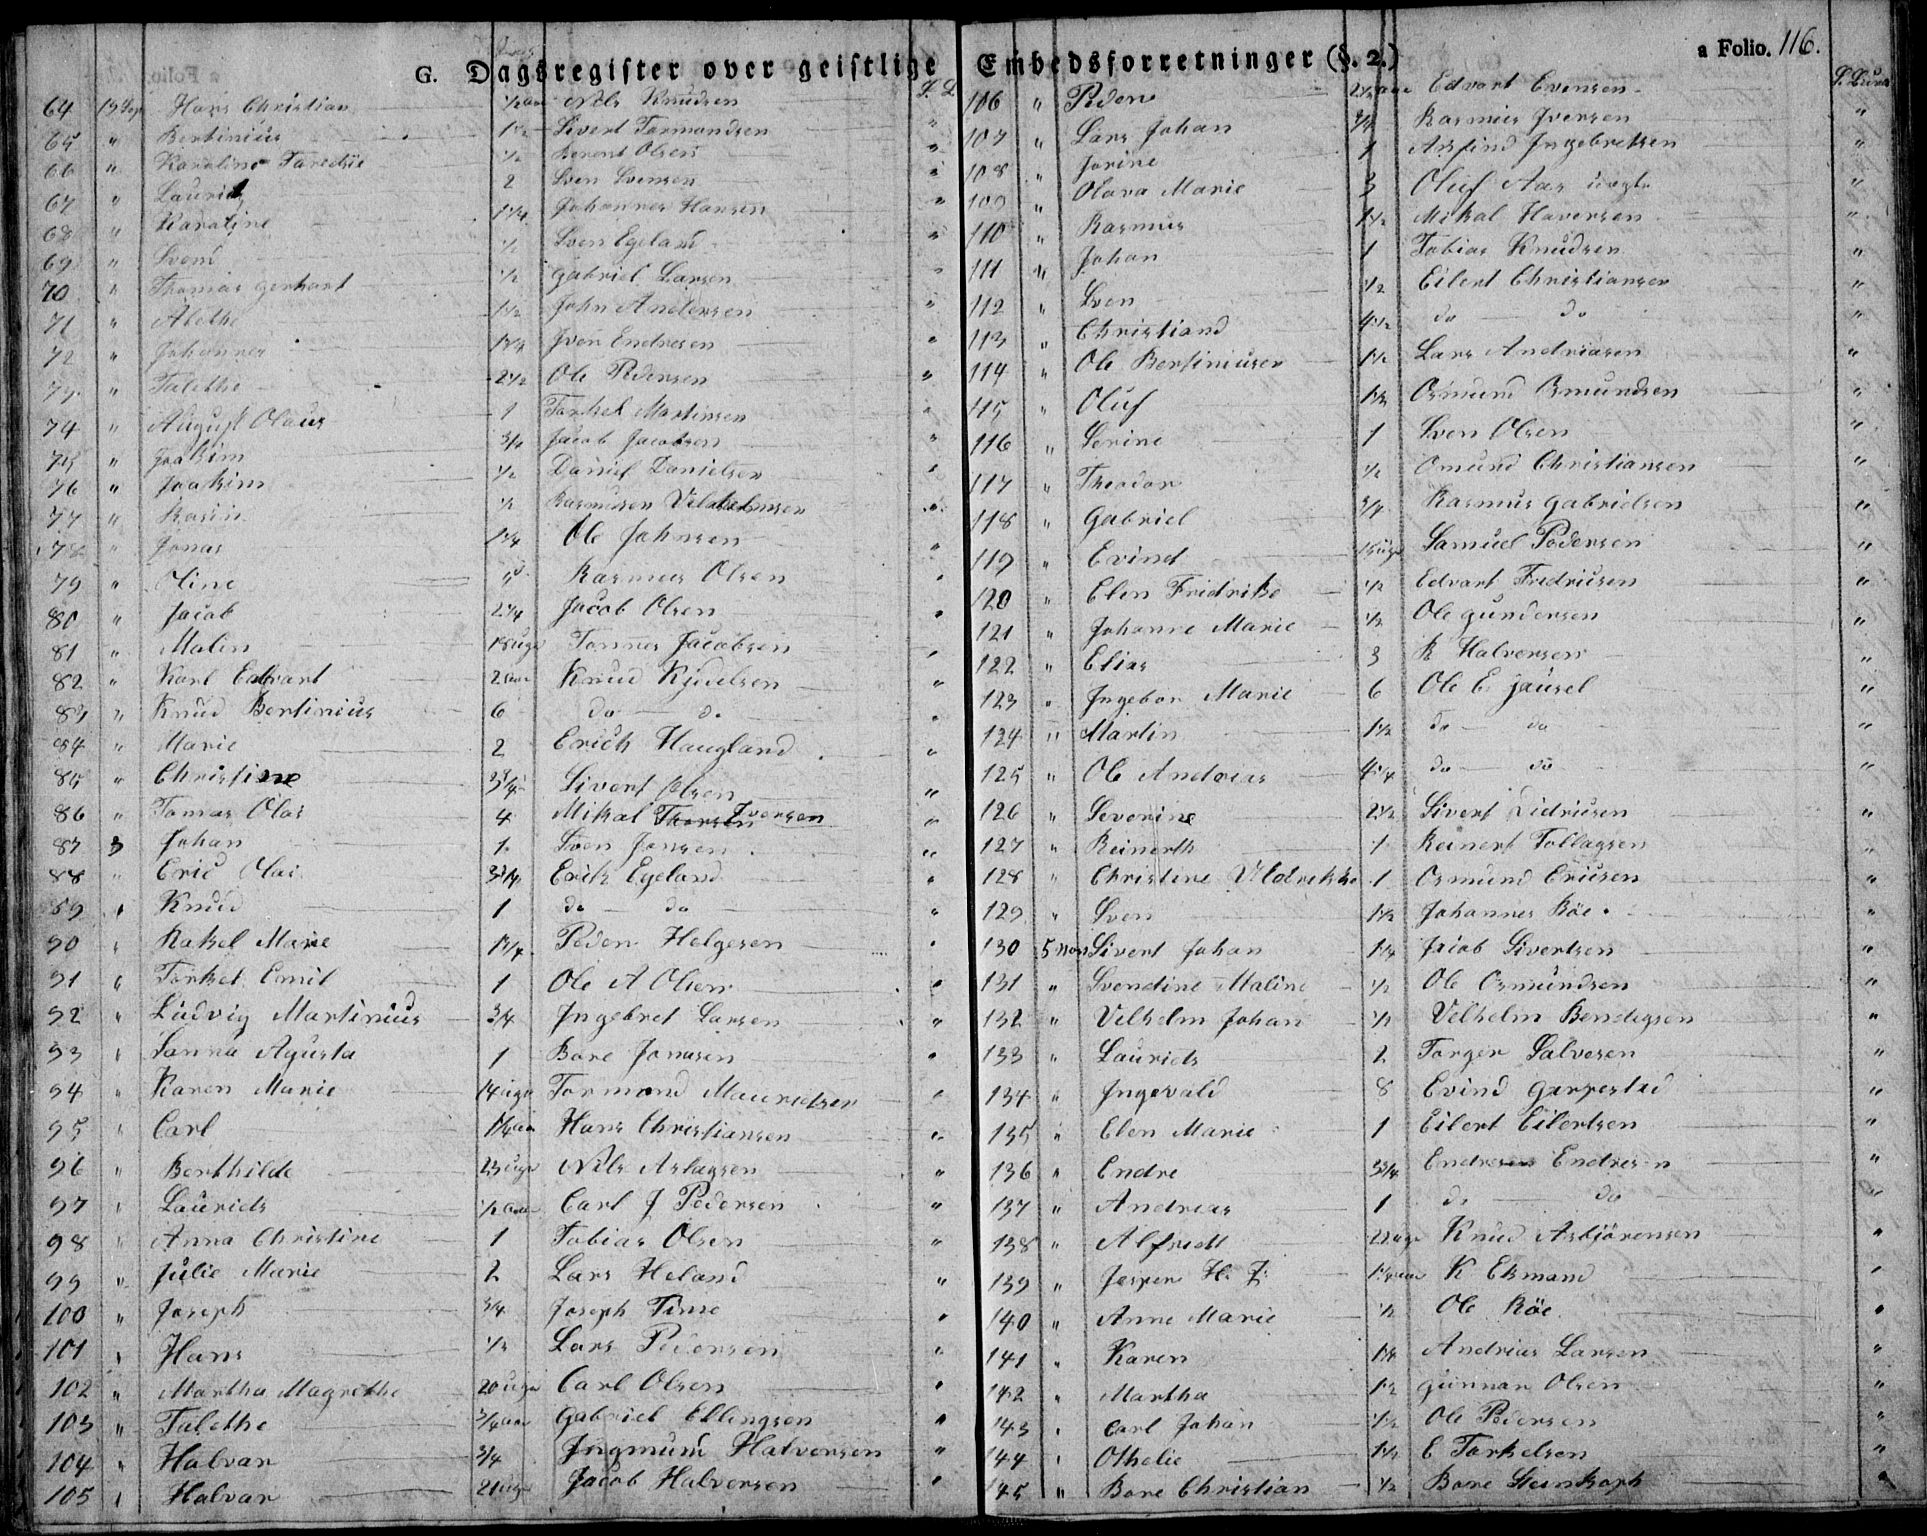 G. Dagsregister over geistlige Embedsforretninger (§. 2.) a Folio. 116.
64 13 Sep Hans Christian ½ aar Nils Knudsen S. L
65 " Bertinius 1½ Sivert Tormondsen "
66 " Karoline ½ Berent Olsen "
67 " Laurits 2 Sven Svensen "
68 " Karoline 1¼ Johannes Hansen "
69 " Svend ½ Sven Egeland "
70 " Thomas Gerhart ½ Gabriel Larsen "
71 " Alethe 1½ John Andersen "
72 " Johannes 1¾ Iver Endresen "
73 " Talethe 2½ Ole Pedersen "
74 " August Olaus 1 Torkel Martinsen "
75 " Joakim ¾ Jacob Jacobsen "
76 " Joakim ½ Daniel Danielsen "
77 " Rasin ½ Rasmusen "
78 " Jonas 1¾ Ole Johnsen "
79 " Oline Rasmus Olsen "
80 " Jacob 2¼ Jacob Olsen "
81 " Malen 18 uge Tonnes Jacobsen "
82 " Karl Edvart 2 aar Knud Kjedelsen "
83 " Knud Bertinius 6 do do "
84 " Marie 2 Erich Haugland "
85 " Christine 3¾ Sivert Olsen "
86 " Tomas Olai 4 Mikal Iversen "
87 " Johan 1 Sven Jonsen "
88 " Eric Olai 3¾ Erich Egeland "
89 " Knud 1 do do "
90 " Rakel Marie 1¾ Peder Helgesen "
91 " Torkel Emil 1 Ole A Olsen "
92 " Ludvig Martinius ¾ Ingebret Larsen "
93 " Sanna Agusta 1 Bore Jonasen "
94 " Karen Marie 14 uge Tormond Mauritsen "
95 " Carl 1¼ aar Hans Christiansen "
96 " Berthilde 23 uge Nils Aslagsen "
97 " Laurids ½ aar Carl J Pedersen "
98 " Anna Christine 1 Tobias Olsen "
99 " Julie Marie 2 Lars Heland "
100 " Joseph ¾ Joseph Time "
101 " Hans ½ Lars Pedersen "
102 " Martha Magrethe 20 uge Carl Olsen "
103 " Talethe ¾ aar Gabriel Ellingsen "
104 " Halvar ¾ Ingmund Halversen "
105 " Halvar 21 uge Jacob Halversen "
106 " Peder 2½ aar Edvart Evensen S. Lund
107 " Lars Johan ¾ Rasmus Iversen "
108 " Jorine 1 Arfind Ingebretsen "
109 " Olava Marie 3 Oluf Aas "
110 " Rasmus 1½ Mikal Haversen "
111 " Johan 1 Tobias Knudsen "
112 " Sven ½ Eilert Christiansen "
113 " Christiand 4½ do do "
114 " Ole Bertiniusen 1½ Lars Andreasen "
115 " Oluf 1¾ Osmund Osmundsen "
116 " Serine 1 Sven Olsen "
117 " Theodor ½ Omund Christiansen "
118 " Gabriel ¾ Rasmus Gabrielsen "
119 " Evind uge Samuel Pedersen "
120 " Elen Fridrike ½ Edvart Fredriksen "
121 " Johanne Marie ½ Ole Gundersen "
122 " Elias 3 K Halversen "
123 " Ingebor Marie 6 Ole E. Gausel "
124 " Martin 1½ do do "
125 " Ole Andreas 4¼ do do "
126 " Severine 2½ Sivert Didriksen "
127 " Reinerth 1 Reinert Tollagsen "
128 " Christine 1 Osmund Ericsen "
129 " Sven 1½ Johannes Röe "
130 5 Nov Sivert Johan 1¼ Jacob Sivertsen "
131 " Svendine Maline ½ Ole Osmundsen "
132 " Velhelm Johan ½ Velhelm Bendigsen "
133 " Laurids 2 Torger Salvesen "
134 " Ingevald 8 Evind Garpestad "
135 " Elen Marie 1 Eilert Eilertsen "
136 " Endre 3¾ Endresen Endresen "
137 " Andreas 1 do do "
138 " Alfredt 22 uge Knud Asbjörensen "
139 " Jesper H. 1½ aar K Ekmand "
140 " Anne Marie ½ Ole Röe "
141 " Karen 1¾ Andreas Larsen "
142 " Martha 1½ Gunnar Olsen "
143 " Carl Johan ½ Ole Pedersen "
144 " Othelie 1½ E Torkelsen "
145 " Bore Christian ½ Bore Steinkoph "